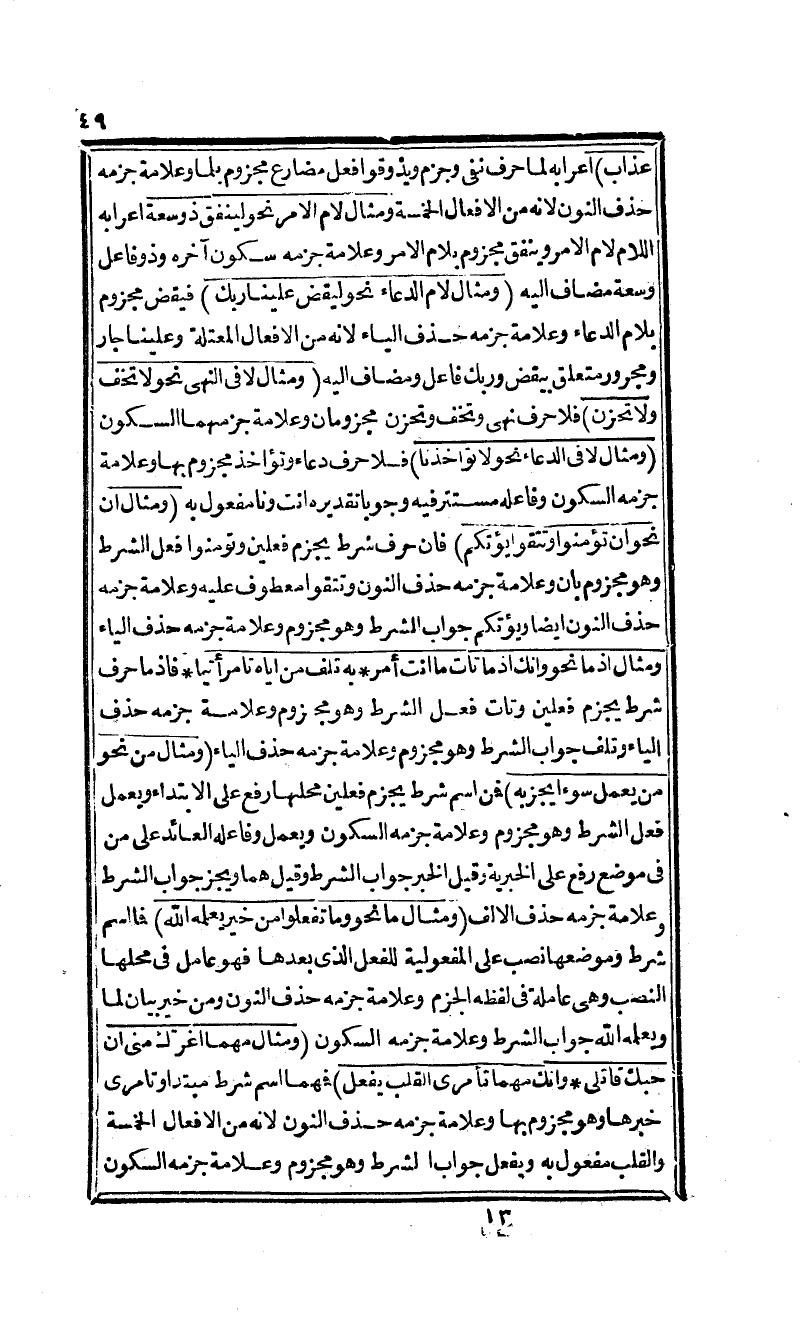 ٤٩
عذاب) اعرابه لما حرف نفى وجزم ويذوقوا فعل مضارع مجزوم بلما وعلامة جزمه
حذف النون لانه من الافعال الخمسة ومثال لام الامر نحو لينفق ذوسعة اعرابه
اللام لام الامر وينفق مجزوم بلام الامر وعلامة جزمه سكون آخره وذو فاعل
وسعة مضاف اليه (ومثال لام الدعاء نحو ليقض علينا ربك) فيقض مجزوم
بلام الدعاء وعلامة جزمه حذف الياء لانه من الافعال المعتلة وعلينا جار
ومجرور متعلق بيقض وربك فاعل ومضاف اليه (ومثال لا فى النهى نحو لا تخف
ولا تحزن) فلا حرف نهى وتخف وتحزن مجزومان وعلامة جزمهما السكون
(ومثال لا فى الدعاء نحو لا تؤاخذنا) فلا حرف دعاء وتؤاخذ مجزوم بها وعلامة
جزمه السكون وفاعله مستتر فيه وجوبا تقديره انت ونا مفعول به (ومثال ان
نحو ان تؤمنوا وتتقوا يؤتكم) فان حرف شرط يجزم فعلين وتومنوا فعل الشرط
وهو مجزوم بان وعلامة جزمه حذف النون وتتقوا معطوف عليه وعلامة جزمه
حذف النون ايضا ويؤتكم جواب الشرط وهو مجزوم وعلامة جزمه حذف الياء
ومثال اذما نحو وانك اذما تات ما انت أمر * به تلف من اياه تامر أتيا * فاذما حرف
شرط يجزم فعلين وتات فعل الشرط وهو مجزوم وعلامة جزمه حذف
الياء وتلف جواب الشرط وهو مجزوم وعلامة جزمه حذف الياء (ومثال من نحو
من يعمل سوءا يجز به) فمن اسم شرط يجزم فعلين محلها رفع على الابتداء ويعمل
فعل الشرط وهو مجزوم وعلامة جزمه السكون ويعمل وفاعله العائد على من
فى موضع رفع على الخبرية وقيل الخبر جواب الشرط وقيل هما ويجز جواب الشرط
وعلامة جزمه حذف الالف (ومثال ما نحو وما تفعلوا من خير يعلمه الله) فما اسم
شرط وموضعها نصب على المفعولية للفعل الذى بعدها فهو عامل فى محلها
النصب وهى عاملة فى لفظه الجزم وعلامة جزمه حذف النون ومن خير بيان لما
ويعلمه الله جواب الشرط وعلامة جزمه السكون (ومثال مهما اغرك منى ان
حبك قاتلى * وانك مهما تأمرى القلب يفعل) فمهما اسم شرط مبتدا وتامرى
خبرها وهو مجزوم بها وعلامة جزمه حذف النون لانه من الافعال الخمسة
والقلب مفعول به ويفعل جواب الشرط وهو مجزوم وعلامة جزمه السكون
١٣